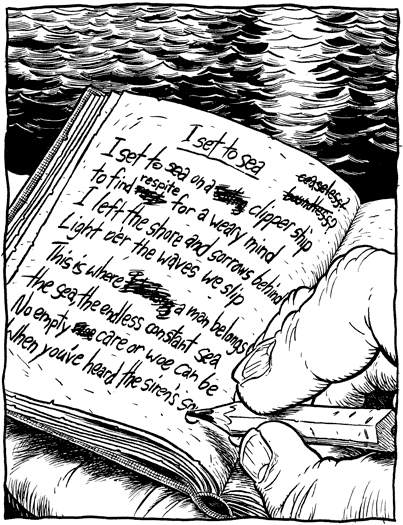 I set to sea
ceaseless?
boundless?
I set to sea on a clipper ship
to find respite for a weary mind
I left the shore and sorrows behind
Light o'er the waves we slip
This is where a man belongs
the sea, the endless constant sea
No empty care or woe can be
When you've heard the siren's